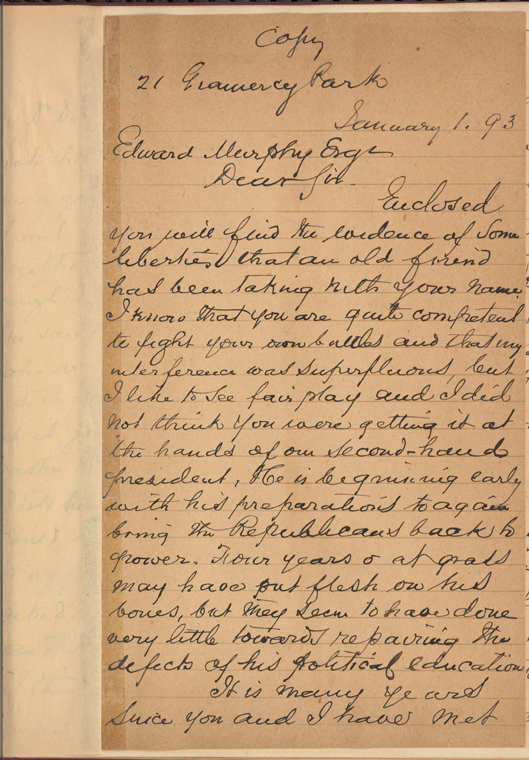 Copy
21 Gramercy Park
January 1. 93
Edward Murphy Esqr
Dear Sir.
Enclosed
you will find the evidence of some
liberties that an old friend
has been taking with your name.
I know that you are quite competent
to fight your own battles and that my
interference was superfluous, but
I like to see fair play and I did
not think you were getting it at
the hands of our second-hand
president. He is beginning early
with his preparations to again
bring the Republicans back to
power. Four years at grass
may have put flesh on his
bones, but they seem to have done
very little towards repairing the
defects of his political education
It is many years
since you and I have met